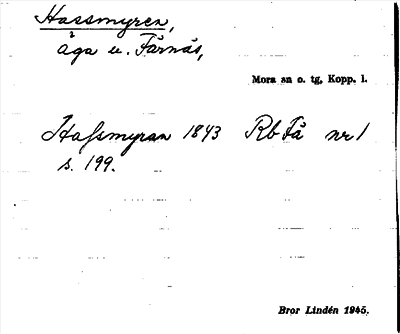 Hassmyren,
äga u. Färnäs,
Mora sn o. tg, Kopp. l.
Hafsmyran 1843 Rb Få nr 1
s. 199.
Bror Lindén 1945.